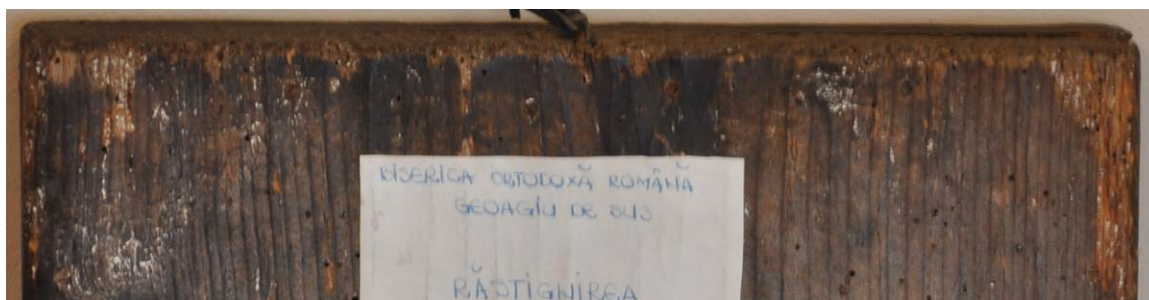 BISERICA ORTODOXĂ ROMÂNĂ
GEOAGIU DE SUS
RĂSTIGNIREA